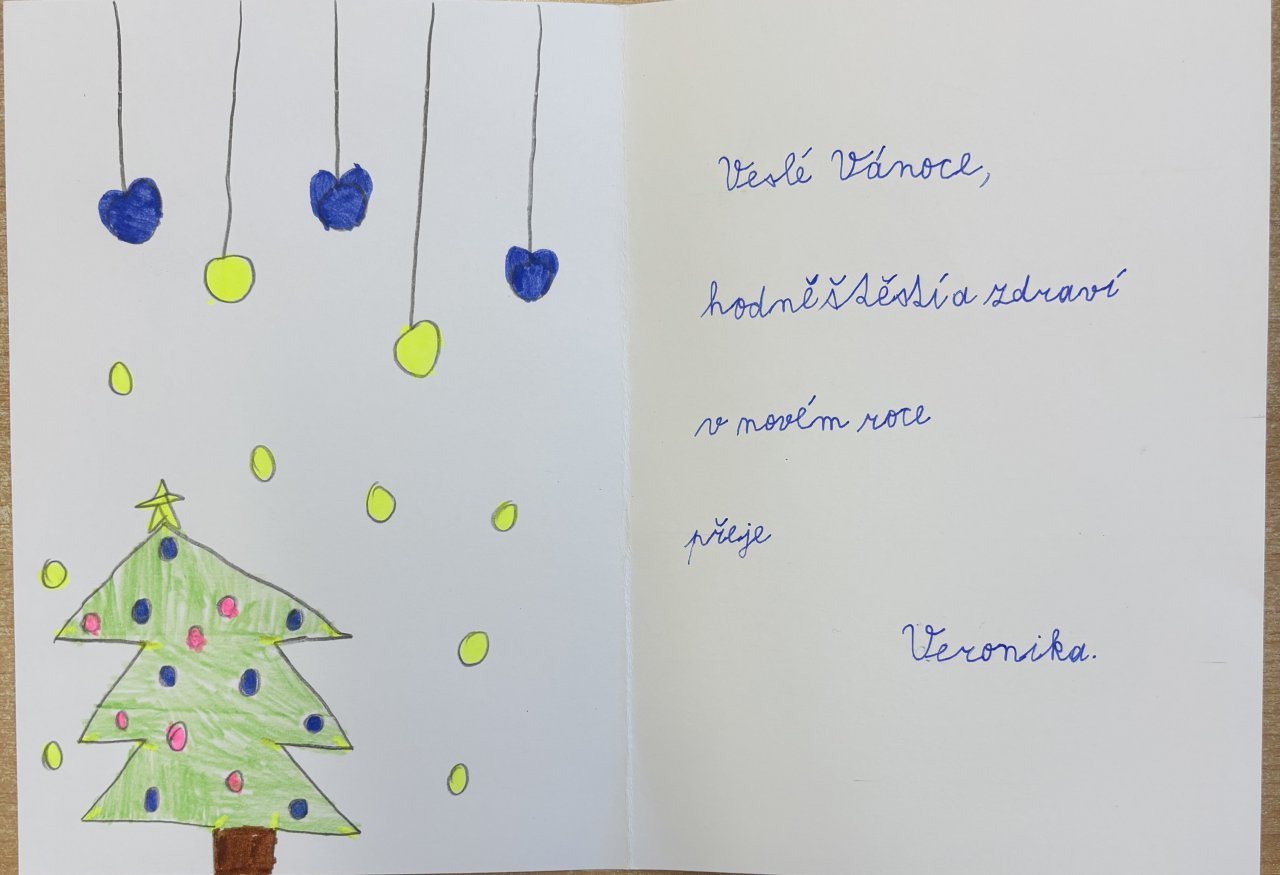 Veslé Vánoce,
hodně štěstí a zdraví
v novém roce
přeje
Veronika.